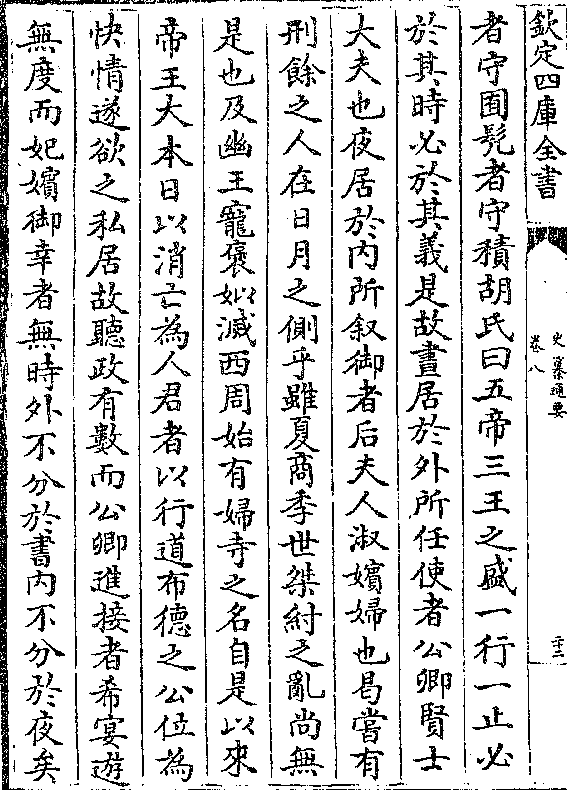 欽定四庫全書
史纂通要
卷八
二十二
者守囿髡者守積胡氏曰五帝三王之盛一行一止必
於其時必於其義是故晝居於外所任使者公卿賢士
大夫也夜居於内所叙御者后夫人淑嬪婦也曷嘗有
刑餘之人在日月之側乎雖夏商季世桀紂之亂尚無
是也及幽王寵褒姒滅西周始有婦寺之名自是以來
帝王大本日以消亡為人君者以行道布德之公位為
快情遂欲之私居故聽政有數而公卿進接者希宴遊
無度而妃嬪御幸者無時外不分於書内不分於夜矣